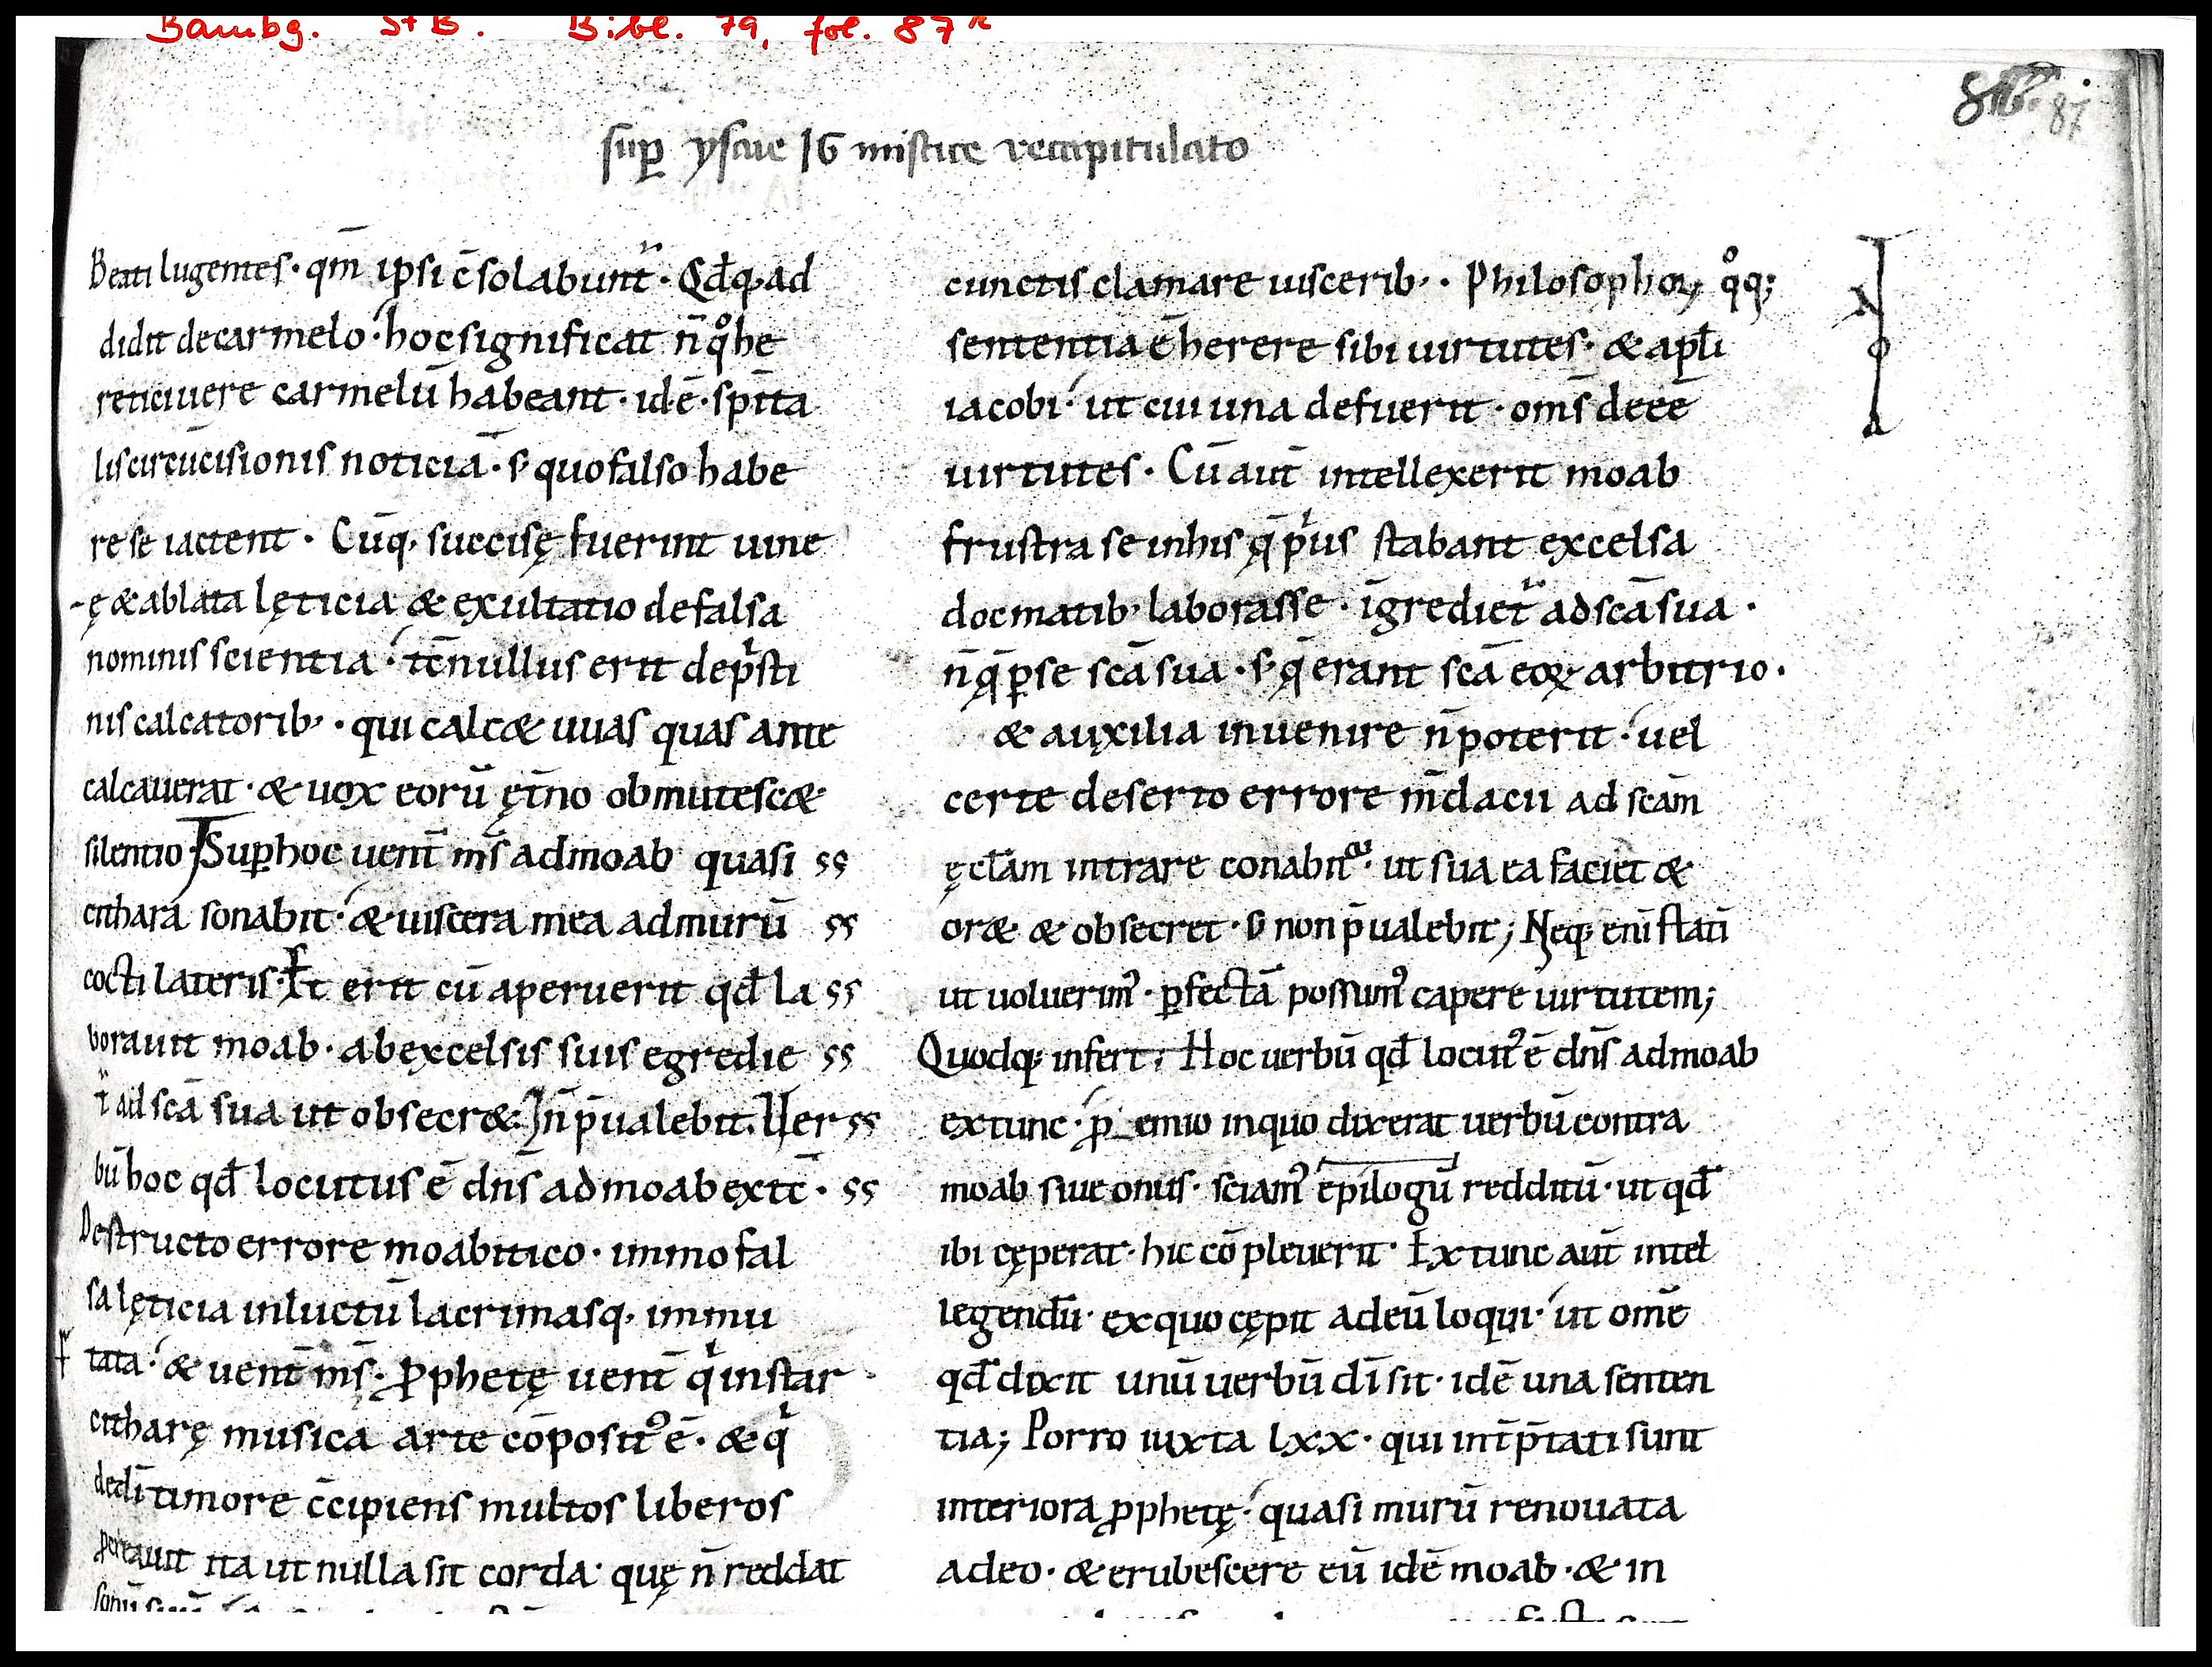 Bambg. StB. Bibl. 79, fol. 87r
87
sup̱ ysaie 16 mistice recapitulato
Beati lugentes · qm̄ ipsi c̄solabunt̄ · Qd̄q· ad
didit de carmelo · hoc significat n̄ qͦ he
retici uere carmelū habeant · id ē · sp̄ita
lis circūcisionis noticiā · s; quo falso habe
re se iactent · Cūq· succisę fuerint uine
ę & ablata lęticia & exultatio de falsa
nominis scientia · tc̄ nullus erit de pͥsti
nis calcatorib; · qui calc& uuas quas ante
calcauerat · & uox eorū ęt̄no obmutesc&
silentio · Sup̱ hoc uent̄ ms̄ ad moab quasi ss
cithara sonabit · & uiscera mea ad murū ss
cocti lateris · Et erit cū aperuerit qd̄ la ss
borauit moab · ab excelsis suis egredie ss
t̄ ad sc̄a sua ut obsecr& · & n̄ p̄ualebit. Uer ss
bū hoc qd̄ locutus ē dn̄s ad moab ex tc̄ · ss
Destructo errore moabitico · immo fal
sa lęticia in luctū lacrimasq· immu
tata · & uent̄ ms̄ · ꝓphetę uent̄ qͥ instar
citharę musica arte cōposit᾽ ē · & qͥ
de dī timore c̄cipiens multos liberos
ita ut nulla sit corda · quę n̄ reddat
cunctis clamare uiscerib; · Philosophoꝝ qͦq;
sententia ē herere sibi uirtutes · & apl̄i
iacobi · ut cui una defuerit · om̄s deeē
uirtutes · Cū aut̄ intellexerit moab
frustra se in his q̄ pͥus stabant excelsa
docmatib; laborasse · īgrediet̄ ad sc̄a sua ·
n̄ q̄ p̱ se sc̄a sua · s; q̄ erant sc̄a eoꝝ arbitrio ·
& auxilia inuenire n̄ poterit · uel
certe deserto errore m̄dacii ad scām
ęcl̄am intrare conabit̄ · ut sua ea faciet &
or& & obsecret · s; non p̄ualebit; Neq· enī statī
ut uoluerim᾽ · p̱fectā possum᾽ capere uirtutem;
Quodq· infert; Hoc uerbū qd̄ locut᾽ ē dn̄s ad moab
ex tunc · ꝓ emio in quo dixerat uerbū contra
moab siue onus · sciam᾽ epilogū redditū · ut qd̄
ibi cęperat · hic cōpleuerit · Ex tunc aut̄ intel
legendū · ex quo cępit ad eū loqui · ut om̄e
qd̄ dixit unū uerbū dī sit · idē una senten
tia; Porro iuxta lxx · qui int̄p̄tati sunt
interiora ꝓphetę · quasi murū renouata
a deo · & erubescere eū idē moab · & in